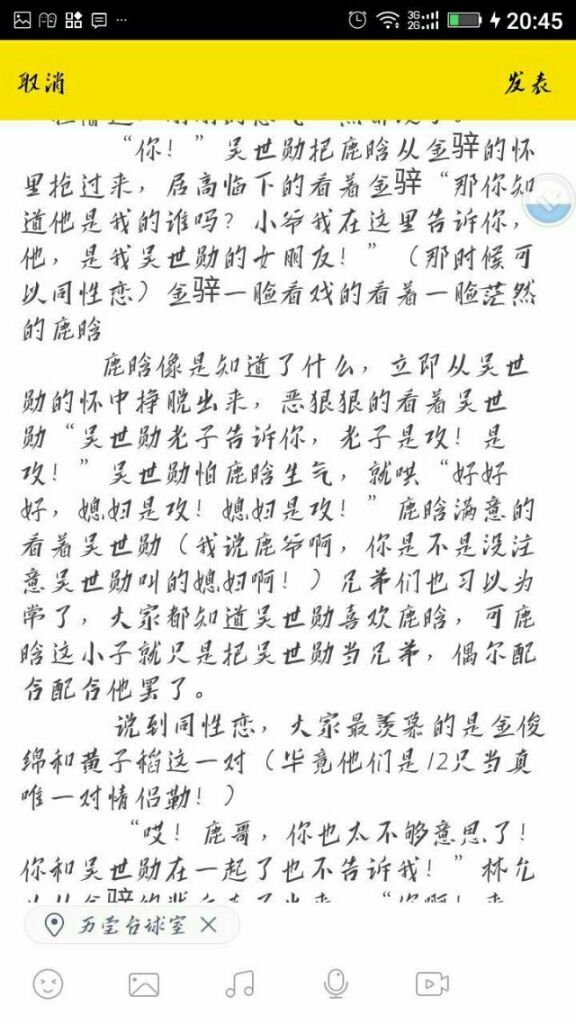 3G
2G
20:45
取消
发表
“你！”吴世勋把鹿晗从金骍的怀
里抢过来，居高临下的看着金骍“那你知
道他是我的谁吗？小爷我在这里告诉你，
他，是我吴世勋的女朋友！”（那时候可
以同性恋）金骍一脸看戏的看着一脸茫然
的鹿晗
鹿晗像是知道了什么，立即从吴世
勋的怀中挣脱出来，恶狠狠的看着吴世
勋“吴世勋老子告诉你，老子是攻！是
攻！”吴世勋怕鹿晗生气，就哄“好好
好，媳妇是攻！媳妇是攻！”鹿晗满意的
看着吴世勋（我说鹿爷啊，你是不是没注
意吴世勋叫的媳妇啊！）兄弟们也习以为
常了，大家都知道吴世勋喜欢鹿晗，可鹿
晗这小子就只是把吴世勋当兄弟，偶尔配
合配合他罢了。
说到同性恋，大家最羡慕的是金俊
绵和黄子稻这一对（毕竟他们是12只当真
唯一对情侣勒！）
“哎！鹿哥，你也太不够意思了！
你和吴世勋在一起了也不告诉我！”林允
万莹台球室